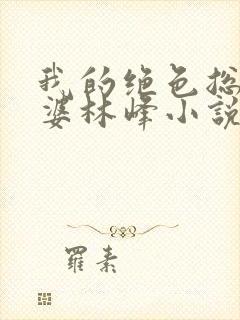 我的绝色总
婆林峰小説
羅素